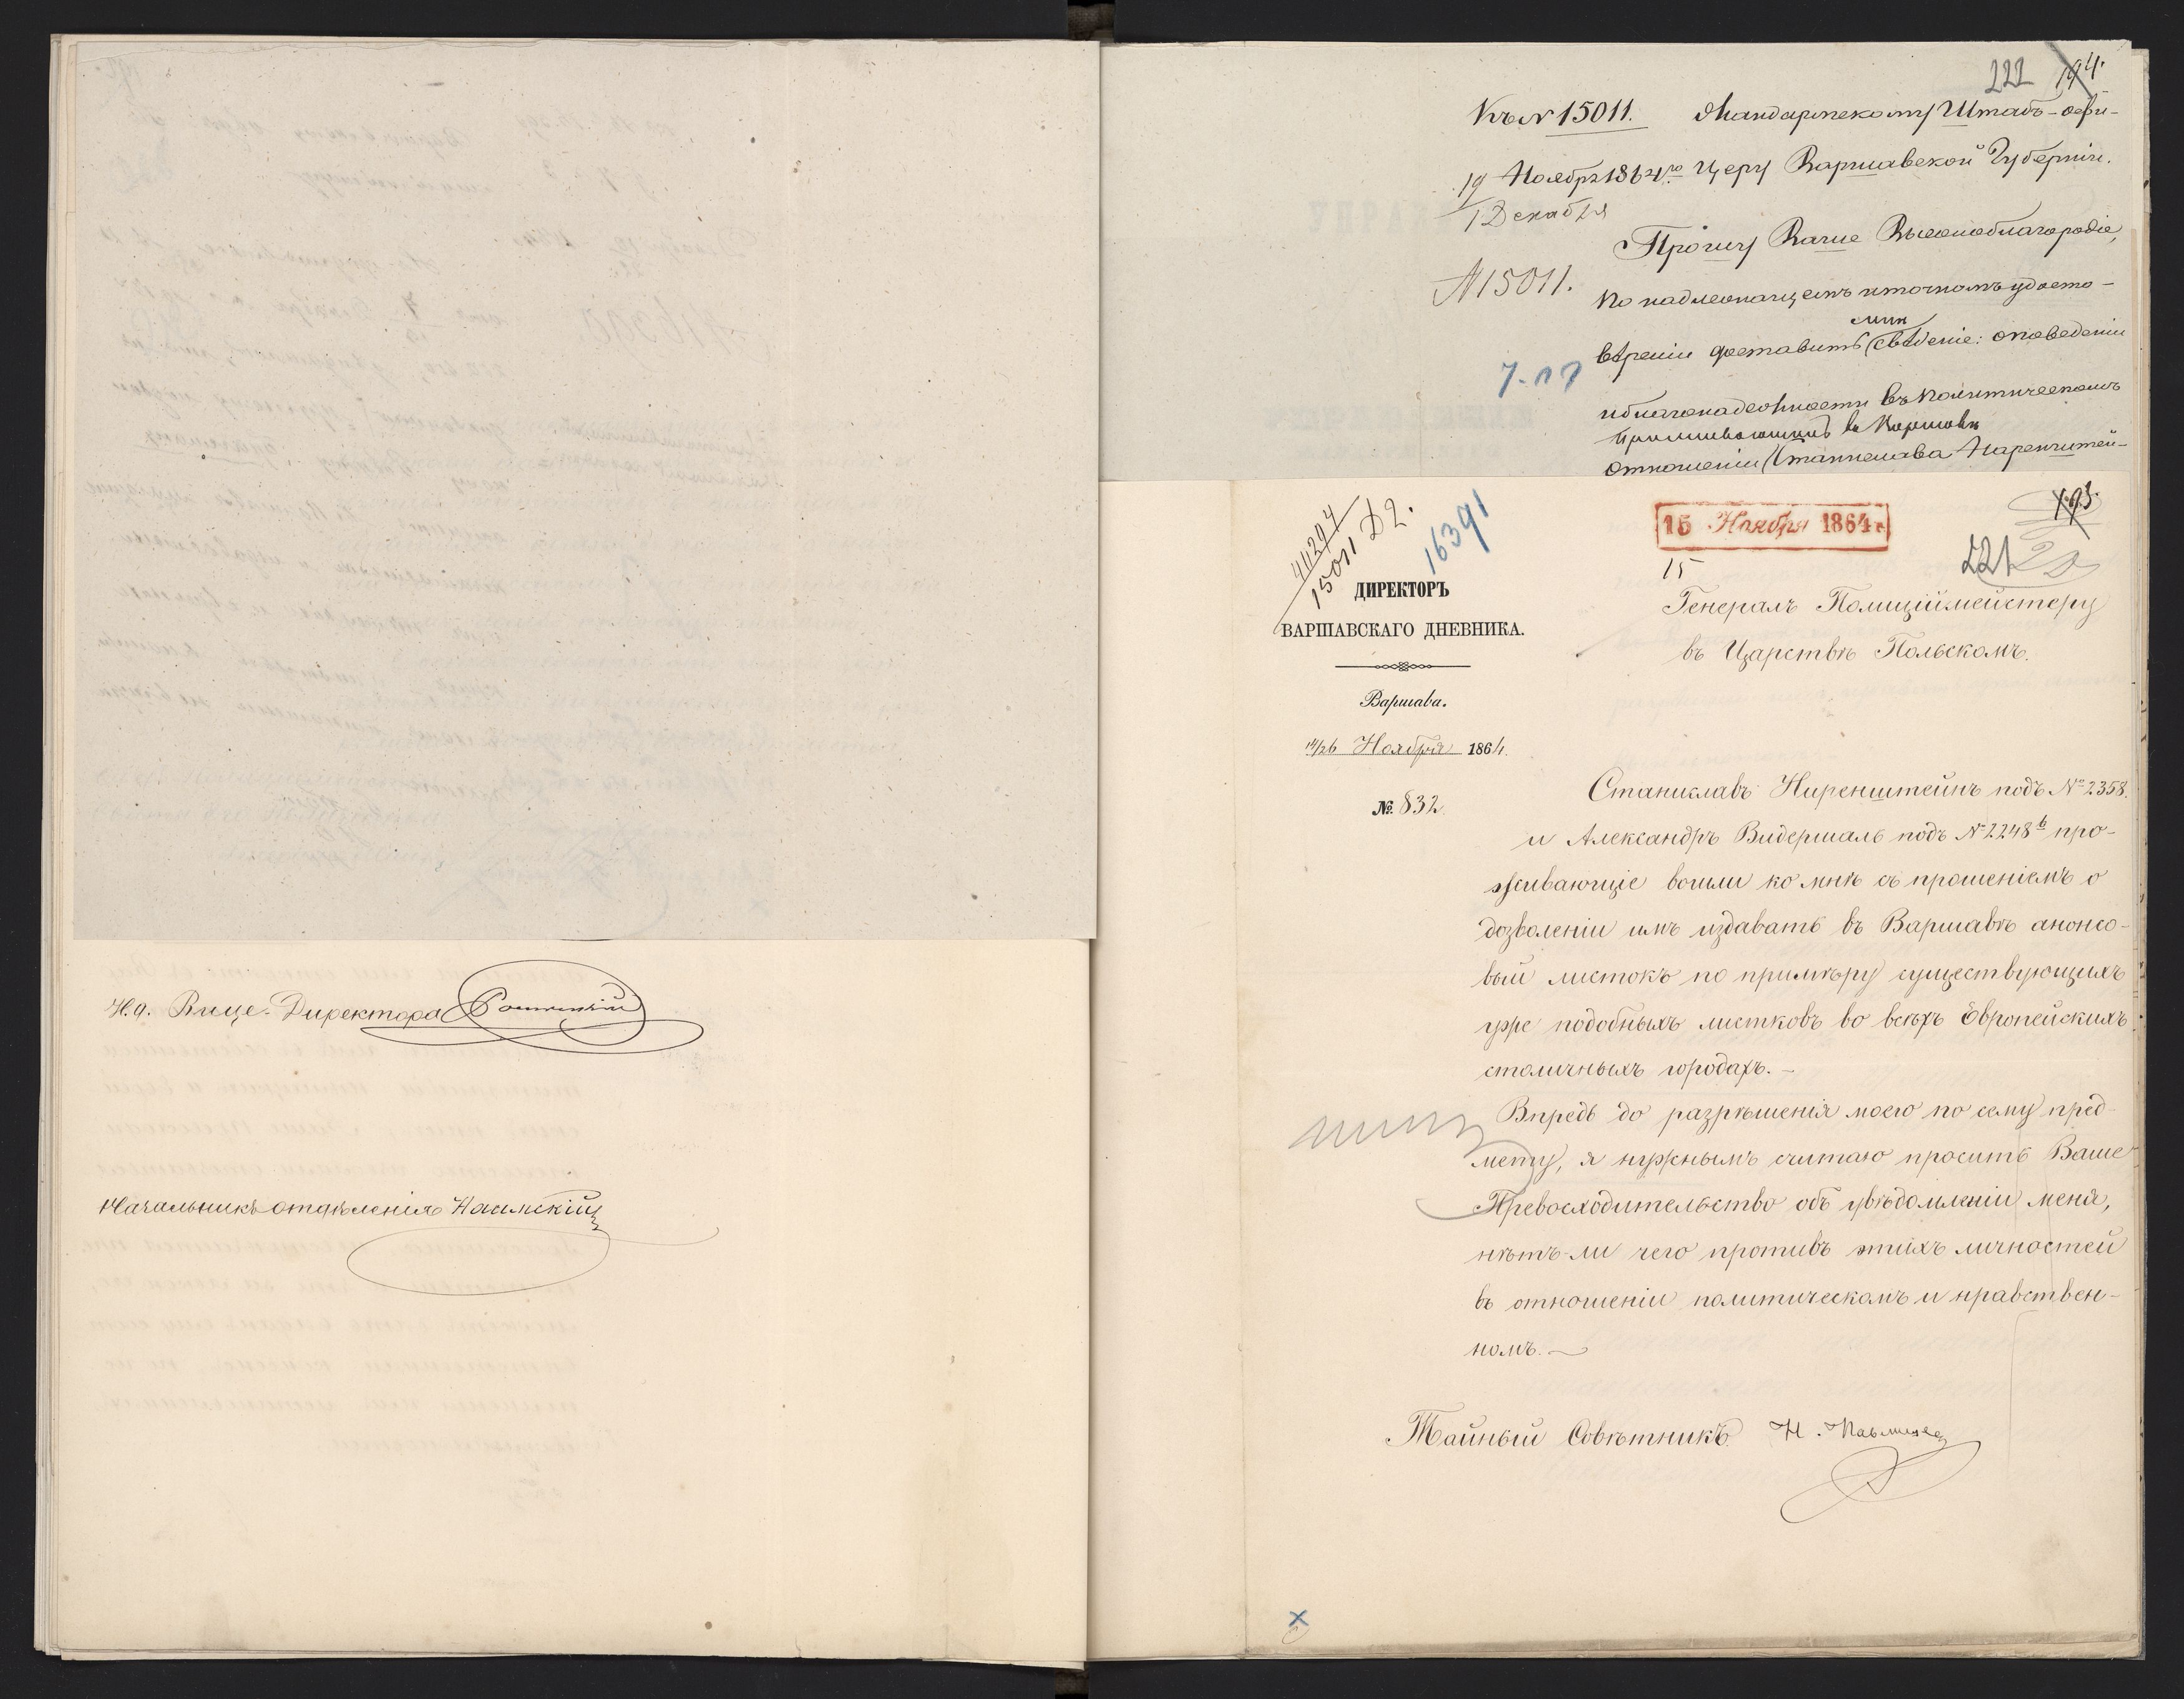 И.д. Вице-Директора
Начальникъ отдѣленія
222 194.
Къ № 15011. Жандармскому Штабъ-офи-
19 Ноября 1864 го церу Варшавской Губерніи.
1 Декабря
Прошу Ваше Высокоблагородіе,
№ 15011.
по надлежащемъ и точномъ удосто-
вѣреніи доставить свѣдѣніе: о поведеніи
и благонадежности въ политическомъ
проживающихъ въ Варшавѣ
отношеніи Станислава Ниренштей-
15011 Д2.
16391
15 Ноября 1864 г.
193.
15
221
ДИРЕКТОРЪ
ВАРШАВСКАГО ДНЕВНИКА.
Варшава.
14/26 Ноября 1864.
№ 832.
Генералъ Полиціймейстеру
въ Царствѣ Польскомъ.
Станиславъ Ниренштейнъ подъ № 2358.
и Александръ Видершаль подъ № 2248 b про-
живающіе вошли ко мнѣ съ прошеніемъ о
дозволеніи имъ издавать въ Варшавѣ анонсо-
вый листокъ по примѣру существующихъ
уже подобныхъ листковъ во всѣхъ Европейскихъ
столичныхъ городахъ. –
Впредь до разрѣшенія моего по сему пред-
мету, я нужнымъ считаю просить Ваше
Превосходительство объ увѣдомленіи меня,
нѣтъ-ли чего противъ этихъ личностей
въ отношеніи политическомъ и нравствен-
номъ. –
Тайный Совѣтникъ Н. Павлищев